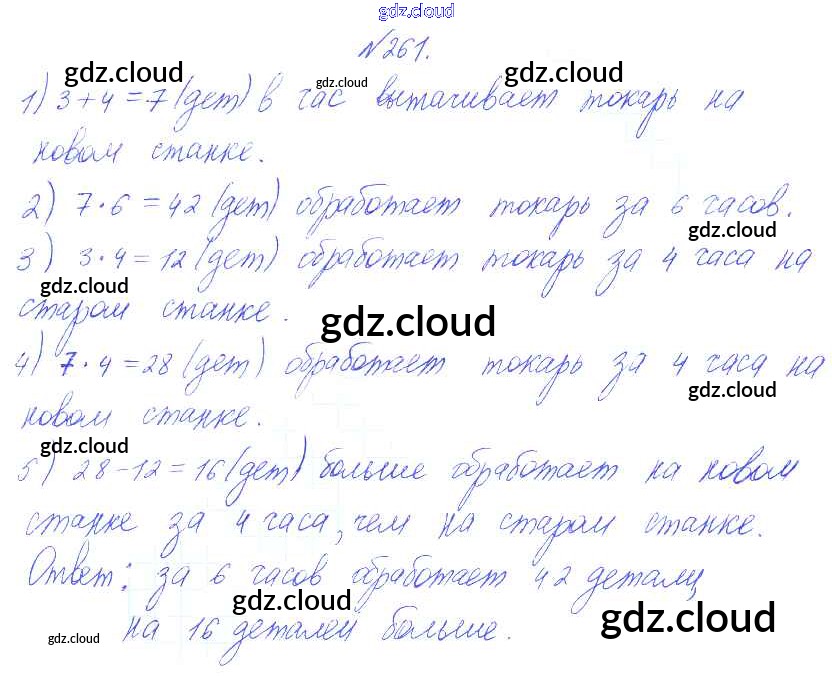 gdz.cloud
№261.
gdz.cloud
gdz.cloud
1) 3+4=7 (дет) в час вытачивает токарь на
новом станке.
2) 7·6=42 (дет) обработает токарь за 6 часов.
gdz.cloud
3) 3·4=12 (дет) обработает токарь за 4 часа на
gdz.cloud
старом станке.
gdz.cloud
4) 7·4=28 (дет) обработает токарь за 4 часа на
gdz.cloud
новом станке.
gdz.cloud
5) 28-12=16 (дет) больше обработает на новом
станке за 4 часа, чем на старом станке.
Ответ: за 6 часов обработает 42 деталц
gdz.cloud
gdz.cloud
на 16 деталей больше.
gdz.cloud